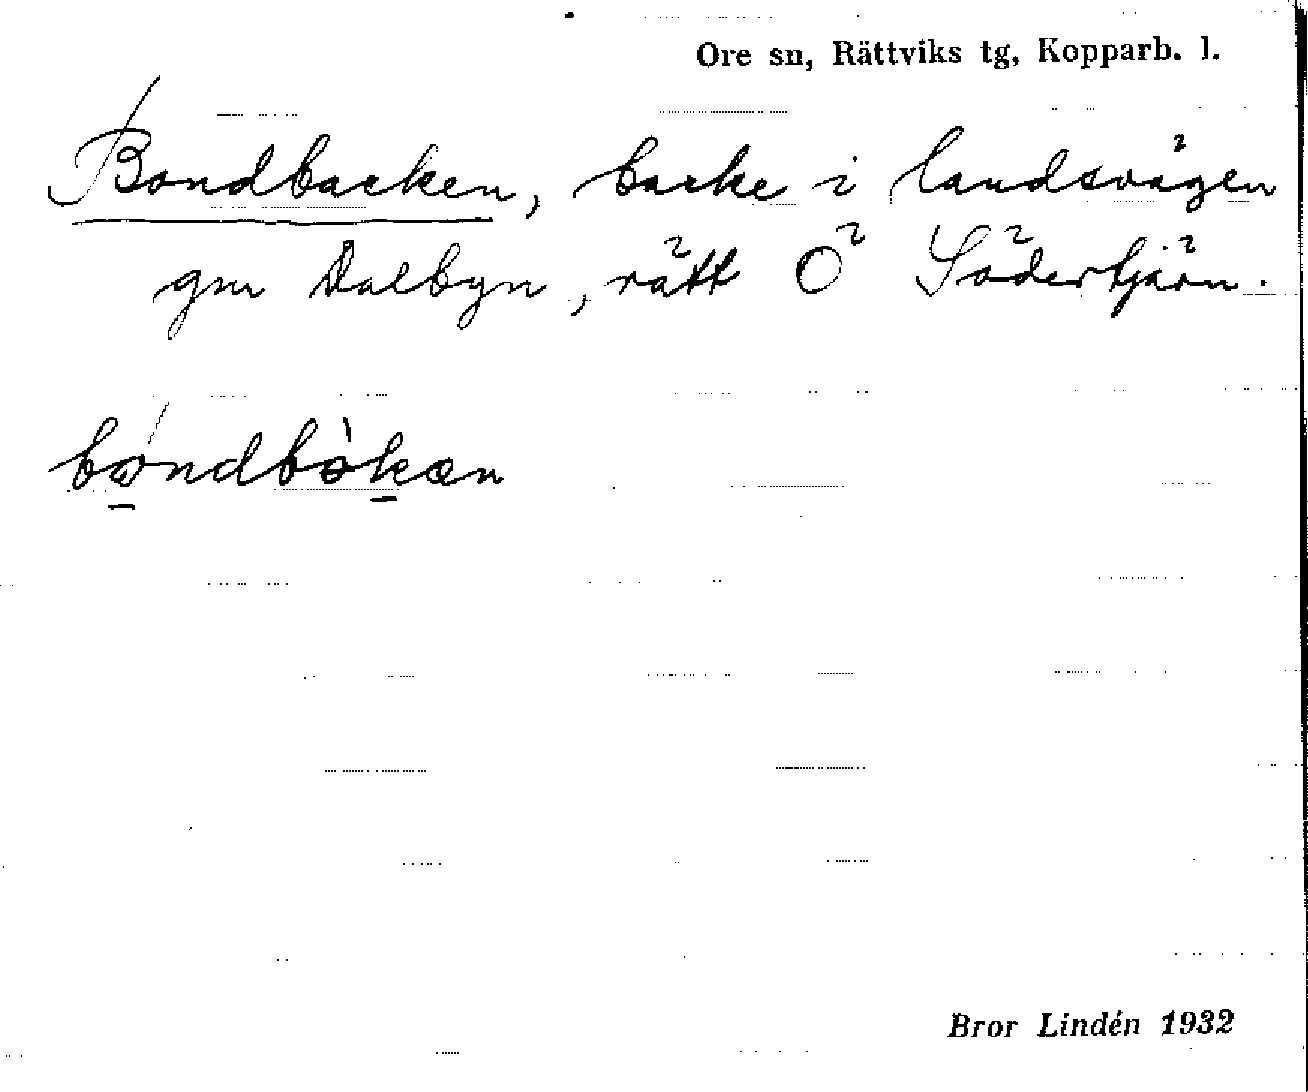 Ore sn, Rättviks tg, Kopparb. l.
Bondbacken, backe i landsvägen
gm Dalbyn, rätt Ö Södertjärn.
bo̠ndbòk̠an
Bror Lindén 1932